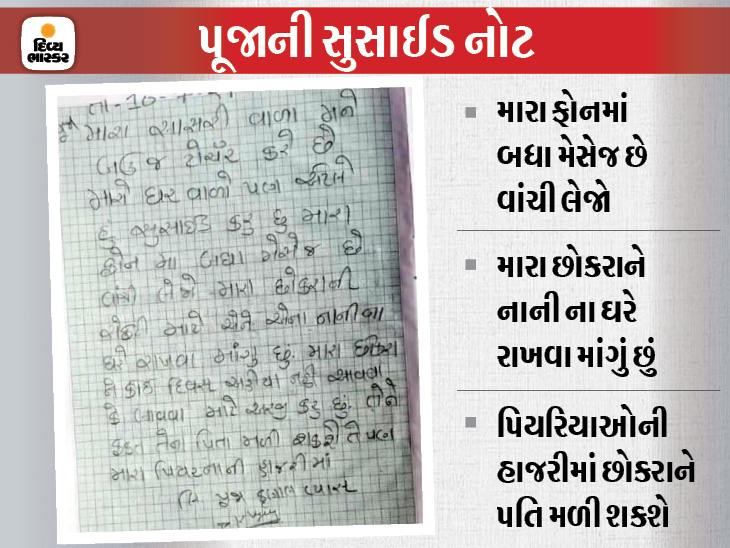 દિવ્ય
ભાસ્કર
પૂજાની સુસાઈડ નોટ
તા-10-
મારા સાસરી વાળા મને
બહુ જ ટોર્ચર કરે છે
મારો ઘર વાળો પણ એટલે
હું સુસાઈડ કરુ છુ મારા
ફોન મા બધા મેસેજ છે
વાંચી લેજો મારા છોકરાની
માટે એને એના નાનીના
ઘરે રાખવા માંગુ છું. મારા છોકરા
ને કોઈ દિવસ અહીયા નહી આવવા
કે લાવવા માટે અરજી કરુ છું. તેને
ફક્ત તેના પિતા મળી શકશે તે પણ
મારા પિયરનાની હાજરીમાં
લિ પૂજા વ્યાસ
મારા ફોનમાં
બધા મેસેજ છે
વાંચી લેજો
મારા છોકરાને
નાની ના ઘરે
રાખવા માંગું છું
પિયરિયાઓની
હાજરીમાં છોકરાને
પતિ મળી શકશે